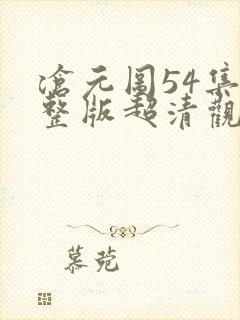 滄元图54集
整版超清觀
慕菀